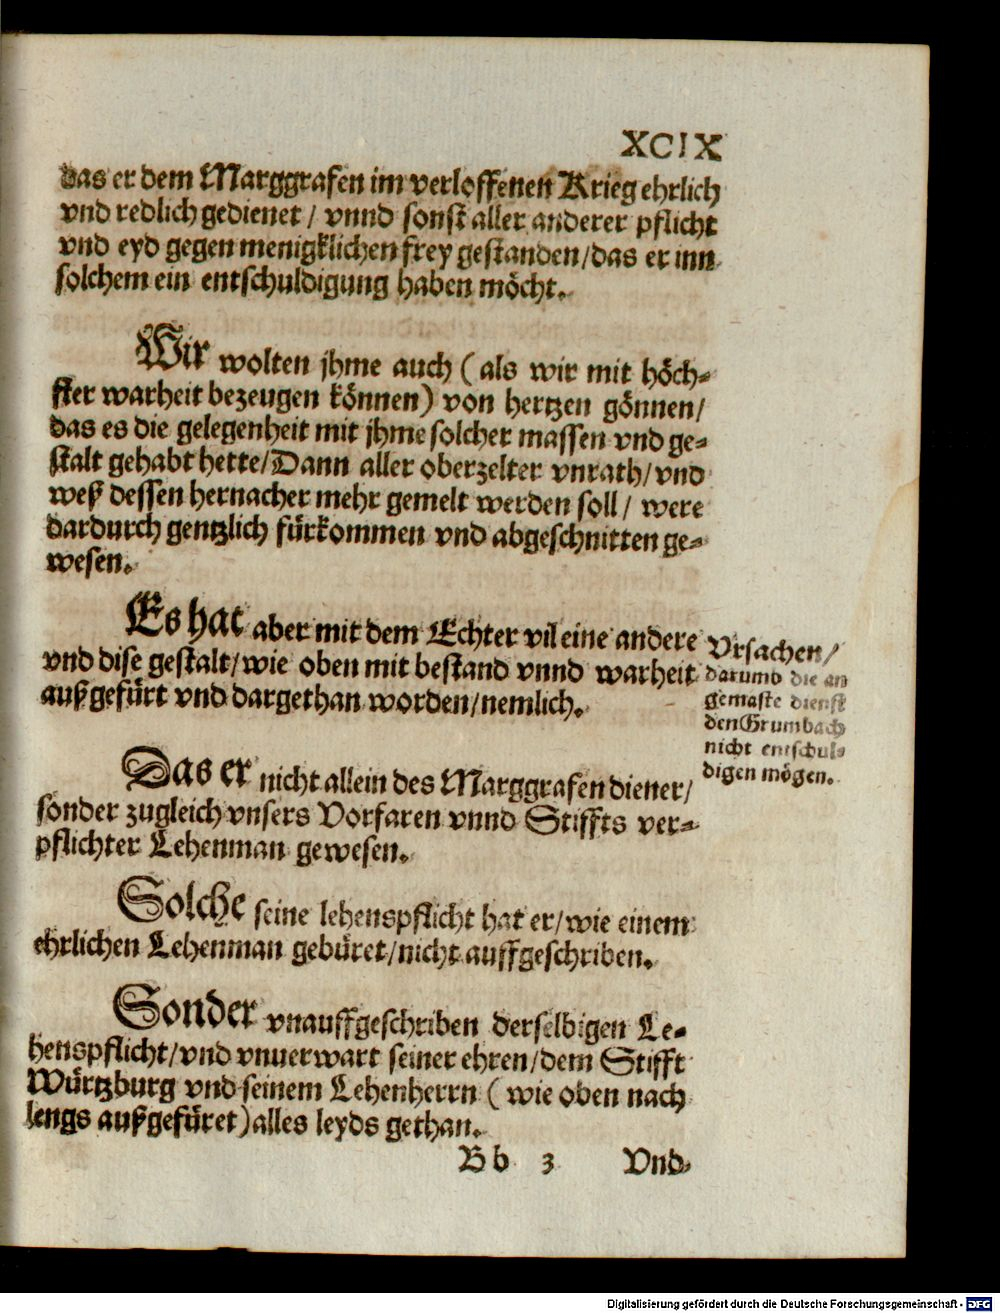 XCIX
das er dem Marggrafen im verloffenen Krieg ehrlich
vnd redlich gedienet / vnnd sonst aller anderer pflicht
vnd eyd gegen menigklichen frey gestanden/das er inn
solchem ein entschuldigung haben möcht.
Wir wolten jhme auch (als wir mit höch-
ster warheit bezeugen können) von hertzen gönnen/
das es die gelegenheit mit jhme solcher massen vnd ge-
stalt gehabt hette/Dann aller oberzelter vnrath/vnd
weß dessen hernacher mehr gemelt werden soll / were
dardurch gentzlich fürkommen vnd abgeschnitten ge-
wesen.
Es hat aber mit dem Echter vil eine andere
vnd dise gestalt/wie oben mit bestand vnnd warheit
außgefürt vnd dargethan worden/nemlich.
Vrsachen/
darumb die an
gemaste dienst
den Grumbach
nicht entschul-
digen mögen.
Das er nicht allein des Marggrafen diener/
sonder zugleich vnsers Vorfaren vnnd Stiffts ver-
pflichter Lehenman gewesen.
Solche seine lehenspflicht hat er/wie einem
ehrlichen Lehenman gebüret/nicht auffgeschriben.
Sonder vnauffgeschriben derselbigen Le-
henspflicht/vnd vnuerwart seiner ehren/dem Stifft
Würtzburg vnd seinem Lehenherrn (wie oben nach
lengs außgefüret) alles leyds gethan.
Bb 3 Vnd
Digitalisierung gefördert durch die Deutsche Forschungsgemeinschaft - DFG